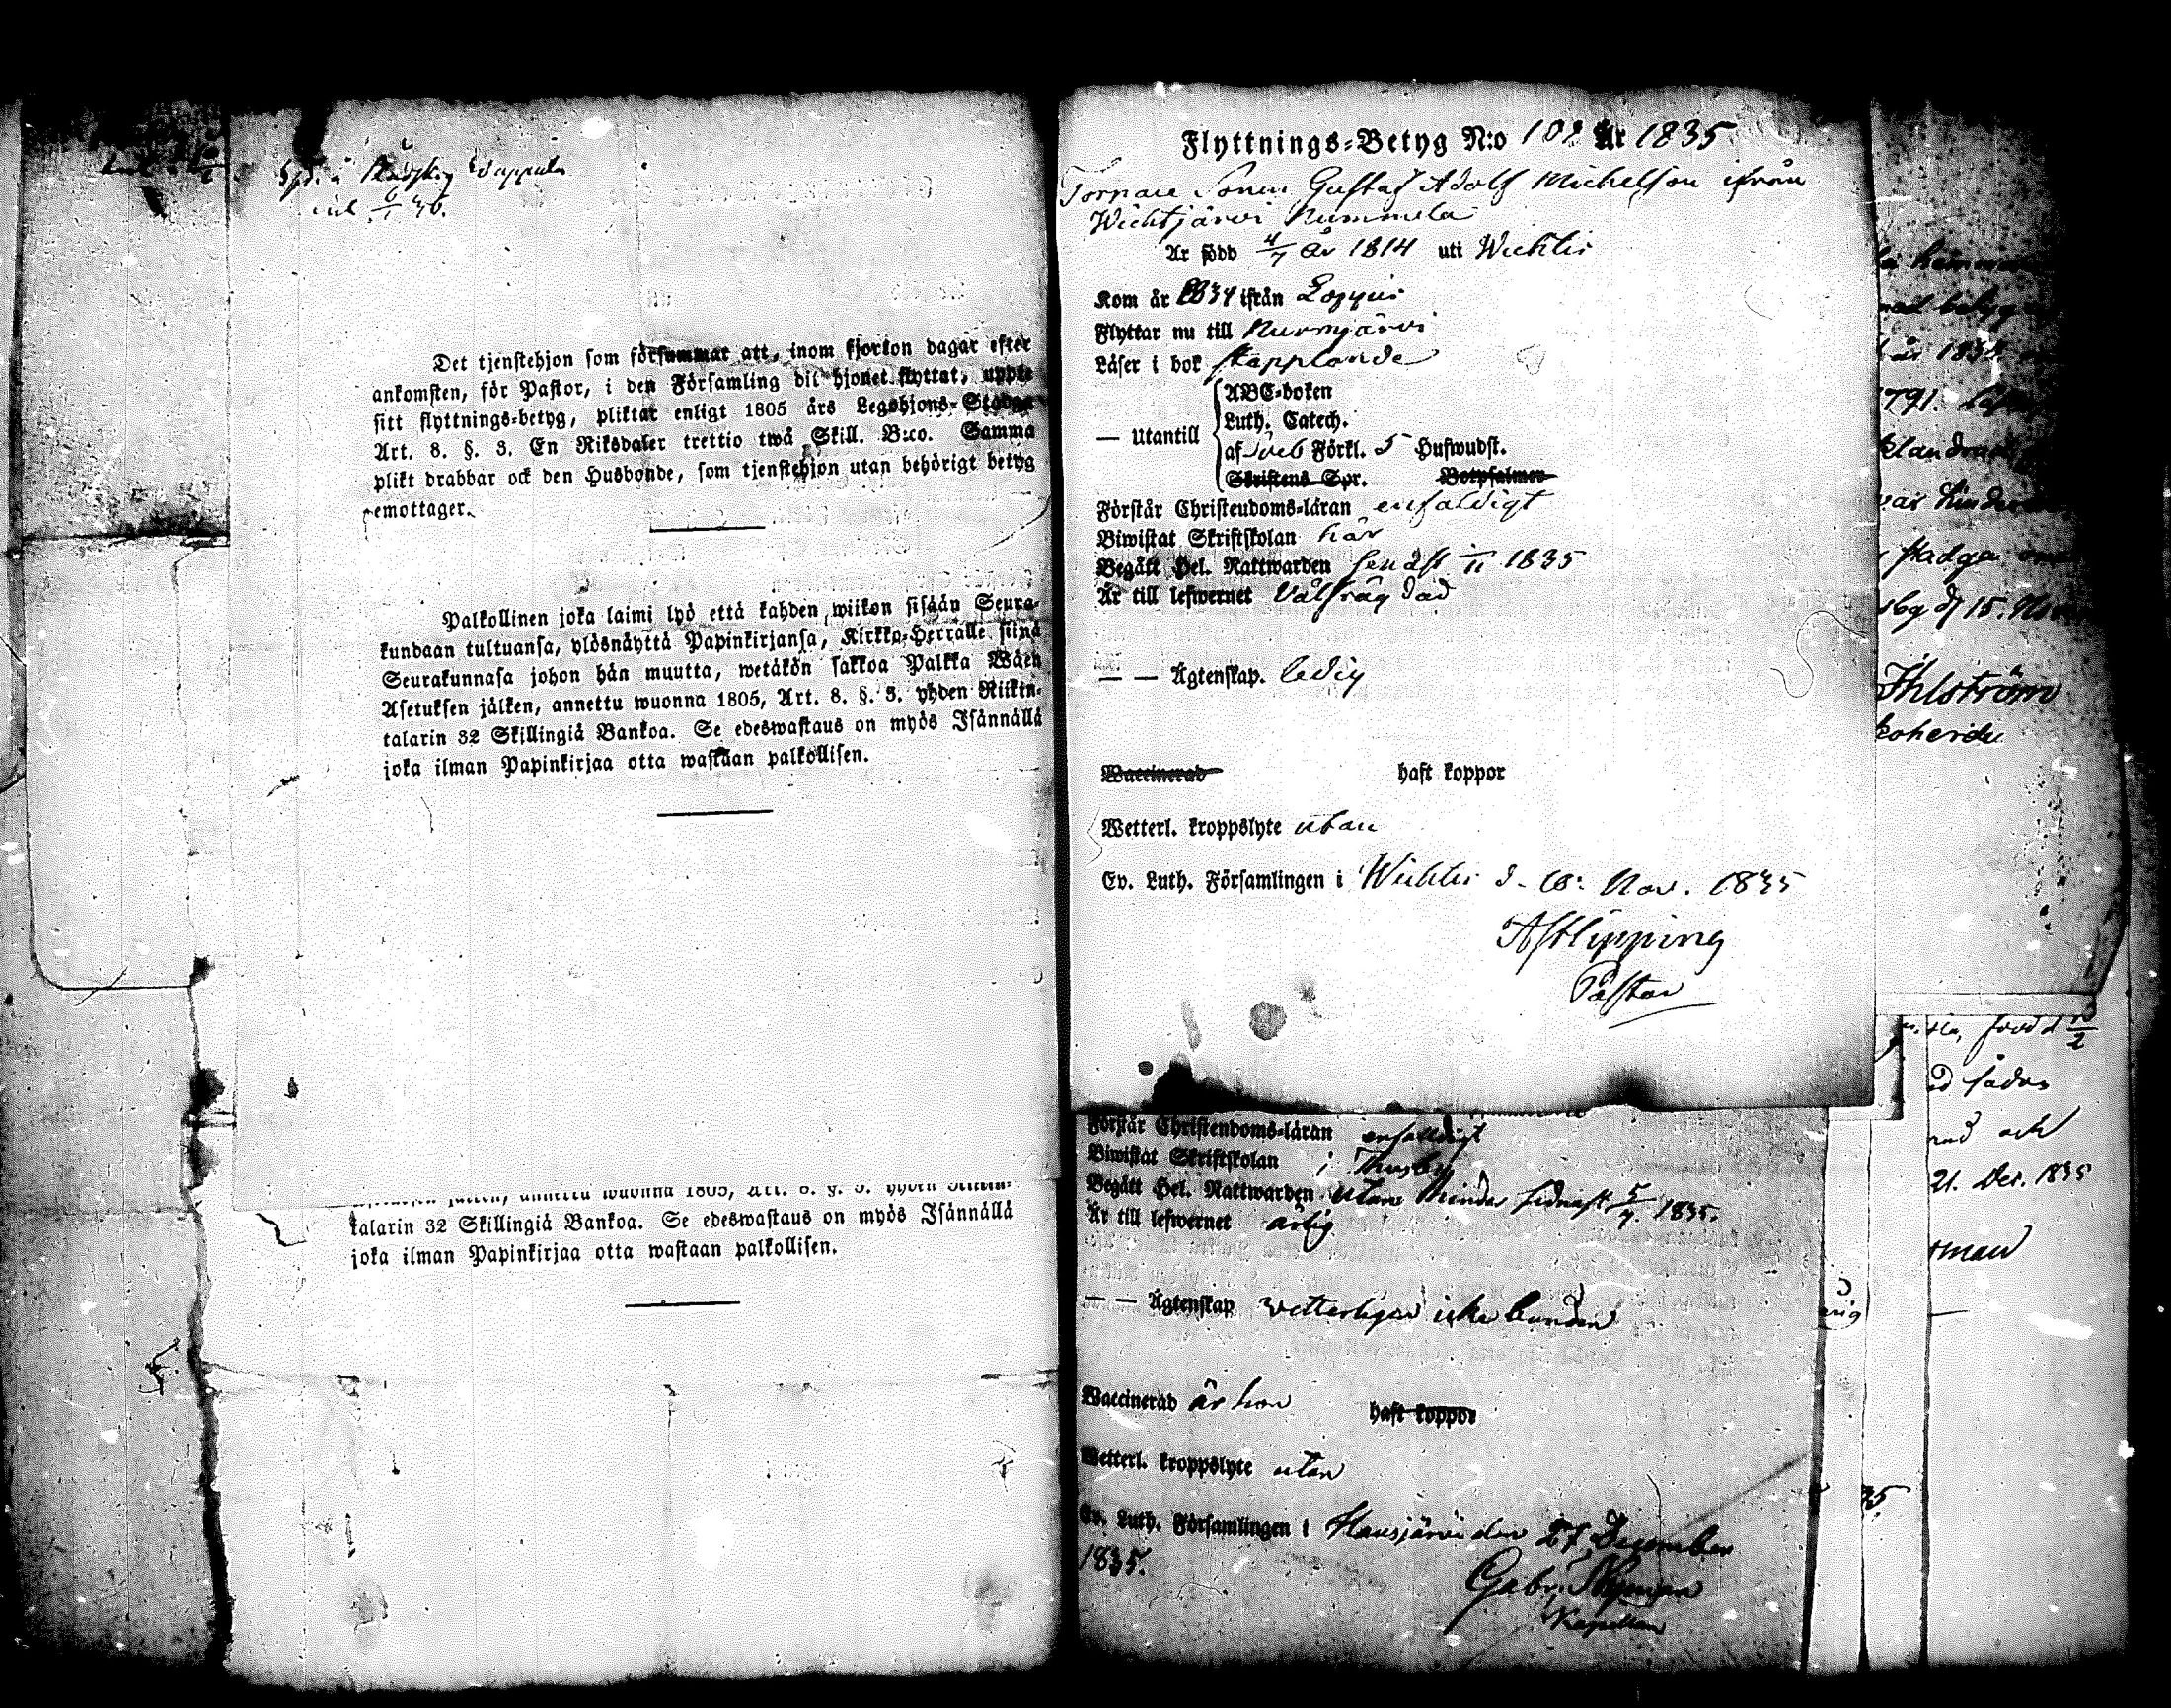 inl. 6/1 36.
Det tjenstehjon som försummar att, inom fjorton dagar efter
ankomsten, för Pastor, i den Församling dit hjonet flyttat, uppte
sitt flyttnings-betyg, pliktar enligt 1805 års Legohjons-Stadga
Art. 8. §. 3. En Riksdaler trettio twå Skill. B:co. Samma
plikt drabbar ock den Husbonde, som tjenstehjon utan behörigt betyg
emottager.
Palkollinen joka laimi lyö että kahden wiikon sisään Seura-
kundaan tultuansa, ylösnäyttä Papinkirjansa, Kirkko-Herralle siinä
Seurakunnasa johon hän muutta, wetäkön sakkoa Palkka Wäen
Asetuksen jälken, annettu wuonna 1805, Art. 8. §. 3. yhden Riikin-
talarin 32 Skillingiä Bankoa. Se edeswastaus on myös Isännällä
joka ilman Papinkirjaa otta wastaan palkollisen.
talarin 32 Skillingiä Bankoa. Se edeswastaus on myös Isännällä
joka ilman Papinkirjaa otta wastaan palkollisen.
Flyttnings-Betyg N:o 102 År 1835
Torpare Sonen Gustaf Adolf Michelson ifrån
Wichtjärvi Nummela
Är född 4/7 År 1814 uti Wichtis
Kom år 1834 ifrån Loppis
Flyttar nu till Nurmijärvi
Läser i bok stapplande
— Utantill
ABC-boken
Luth. Catech.
af Sveb Förkl. 5 Hufwudst.
Skriftens Spr. Botpsalmer
Förstår Christendoms-läran enfaldigt
Biwistat Skriftskolan här
Begått Hel. Nattwarden senast 1/11 1835
Är till lefwernet Välfrägdad
— — Ägtenskap. ledig
Waccinerad haft koppor
Wetterl. kroppslyte utan
Ev. Luth. Församlingen i Wichtis d. 18: Nov. 1835
Pastor
Förstår Christendoms-läran enfaldigt
Biwistat Skriftskolan i Thusby
Begått Hel. Nattwarden utan hinder sednast 5/7. 1835.
Är till lefwernet ärlig
— — Ägtenskap vetterligen icke bunden
Waccinerad är hon haft koppor
Wetterl. kroppslyte utan
Ev. Luth. Församlingen i Hausjärvi den 27 December
1835.
Gabr. Nyman
Kapellan
791.
Ihlström
och
21. Dec. 1835